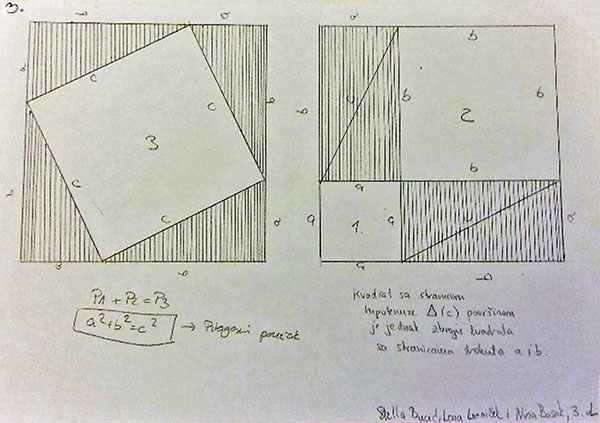 3.
a b
a c
c b
3
b c
c a
a b
a b
b c b 2 b
b
a
a 1. a c a
a b
P1 + P2 = P3
a²+b²=c² → Pitagorin poučak
Kvadrat sa stranicom
hipotenuze Δ (c) površinom
je jednak zbroju kvadrata
sa stranicama trokuta a i b.
Stella Lena i Nina Bosak, 3.d